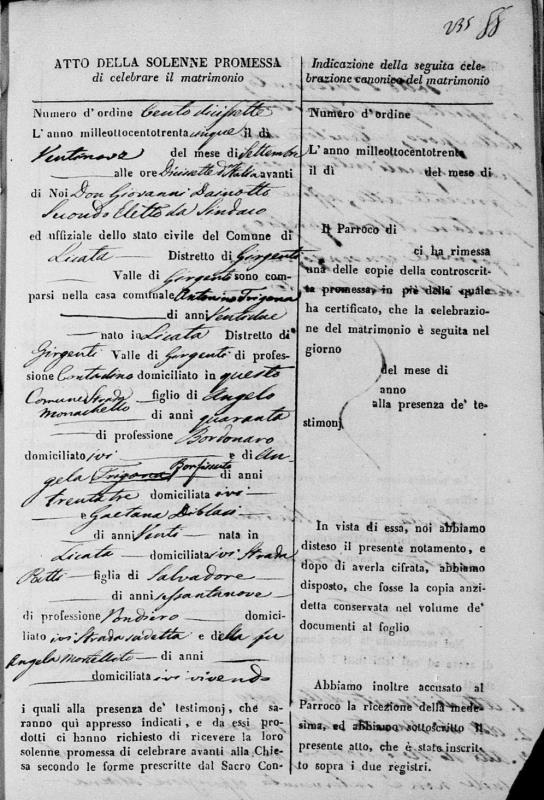 235 88
ATTO DELLA SOLENNE PROMESSA
di celebrare il matrimonio
Numero d'ordine Cento diciesette
L'anno milleottocentotrenta cinque il dì
Ventinove del mese di Settembre
alle ore Diciesette d'Italia avanti
di Noi Don Giovanni Dainotto
Secondo Eletto da Sindaco
ed uffiziale dello stato civile del Comune di
Licata Distretto di Girgenti
Valle di Girgenti sono com-
parsi nella casa comunale Antonino Trigona
di anni Ventidue
nato in Licata Distretto di
Girgenti Valle di Girgenti di profes-
sione Contadino domiciliato in questo
Comune Strada
Monachello figlio di Angelo
di anni quaranta
di professione Bordonaro
domiciliato ivi e di An-
gela Trigona Bonfissuto di anni
trentatre domiciliata ivi
e Gaetana Diblasi
di anni Venti nata in
Licata domiciliata ivi Strada
Retti figlia di Salvadore
di anni sessantanove
di professione domici-
liato ivi Strada sudetta e della fu
Angela di anni
domiciliata ivi vivendo
i quali alla presenza de' testimonj, che sa-
ranno quì appresso indicati, e da essi pro-
dotti ci hanno richiesto di ricevere la loro
solenne promessa di celebrare avanti alla Chie-
sa secondo le forme prescritte dal Sacro Con-
Indicazione della seguita cele-
brazione canonica del matrimonio
Numero d'ordine
L'anno milleottocentotrenta
il dì del mese di
Il Parroco di
ci ha rimessa
una delle copie della controscrit-
ta promessa, in piè della quale
ha certificato, che la celebrazio-
ne del matrimonio è seguita nel
giorno
del mese di
anno
alla presenza de' te-
stimonj
In vista di essa, noi abbiamo
disteso il presente notamento, e
dopo di averla cifrata, abbiamo
disposto, che fosse la copia anzi-
detta conservata nel volume de'
documenti al foglio
Abbiamo inoltre accusato al
Parroco la ricezione della mede-
sima, ed abbiamo sottoscritto il
presente atto, che è stato inscrit-
to sopra i due registri.